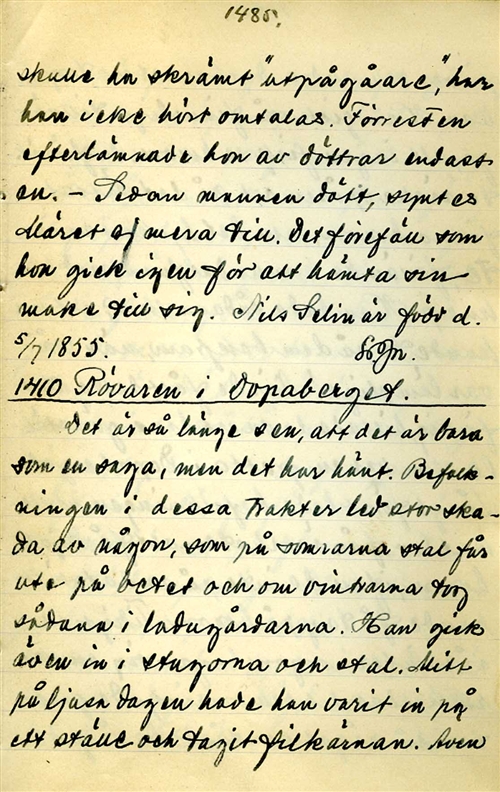 1485.
skulle ha skrämt "utpågåare", har
han icke hört omtalas. Förresten
efterlämnade hon av döttrar endast
en. – Sedan mannen dött, syntes
Märet ej mera till. Det föreföll som
hon gick igen för att hämta sin
make till sig. Nils Selin är född d.
5/7 1855.
1410 Rövaren i Dopaberget.
Det är så länge sen, att det är bara
som en saga, men det har hänt. Befolk-
ningen i dessa trakter led stor ska-
da av någon, som på somrarna stal får
ute på betet och om vintrarna tog
sådana i ladugårdarna. Han gick
även in i stugorna och stal. Mitt
på ljusa dagen hade han varit in på
ett ställe och tagit filkärnan. Även